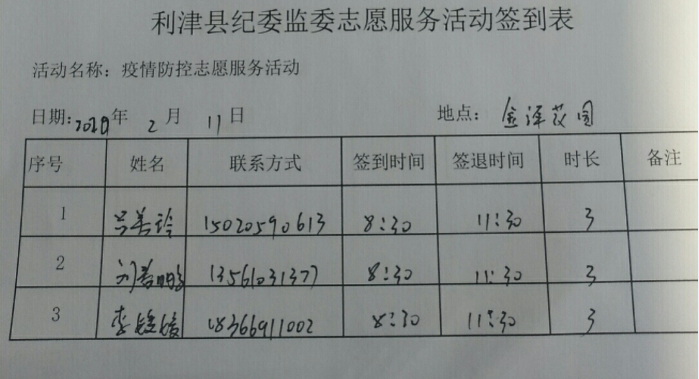 利津县纪委监委志愿服务活动签到表
活动名称：疫情防控志愿服务活动
日期:2020年 2月 11日 地点: 金泽花园
序号 姓名 联系方式 签到时间 签退时间 时长 备注
1 吕美玲 15020590613 8:30 11:30 3
2 刘 13561031377 8:30 11:30 3
3 李媛媛 18366911002 8:30 11:30 3